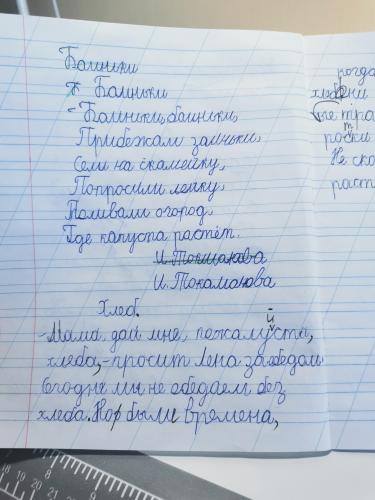 Баиньки
Баиньки
- Баиньки, баиньки,
Прибежали заиньки,
Сели на скамейку,
Попросили лейку,
Поливали огород,
Где капуста растёт.
И. Токмакова
И. Токамакова
Хлеб.
- Мама, дай мне, пожалуйста,
хлеба, - просит Лена за обедом
Сегодня мы не обедаем без
хлеба. Но были времена,
когда
хлеб
не
раст